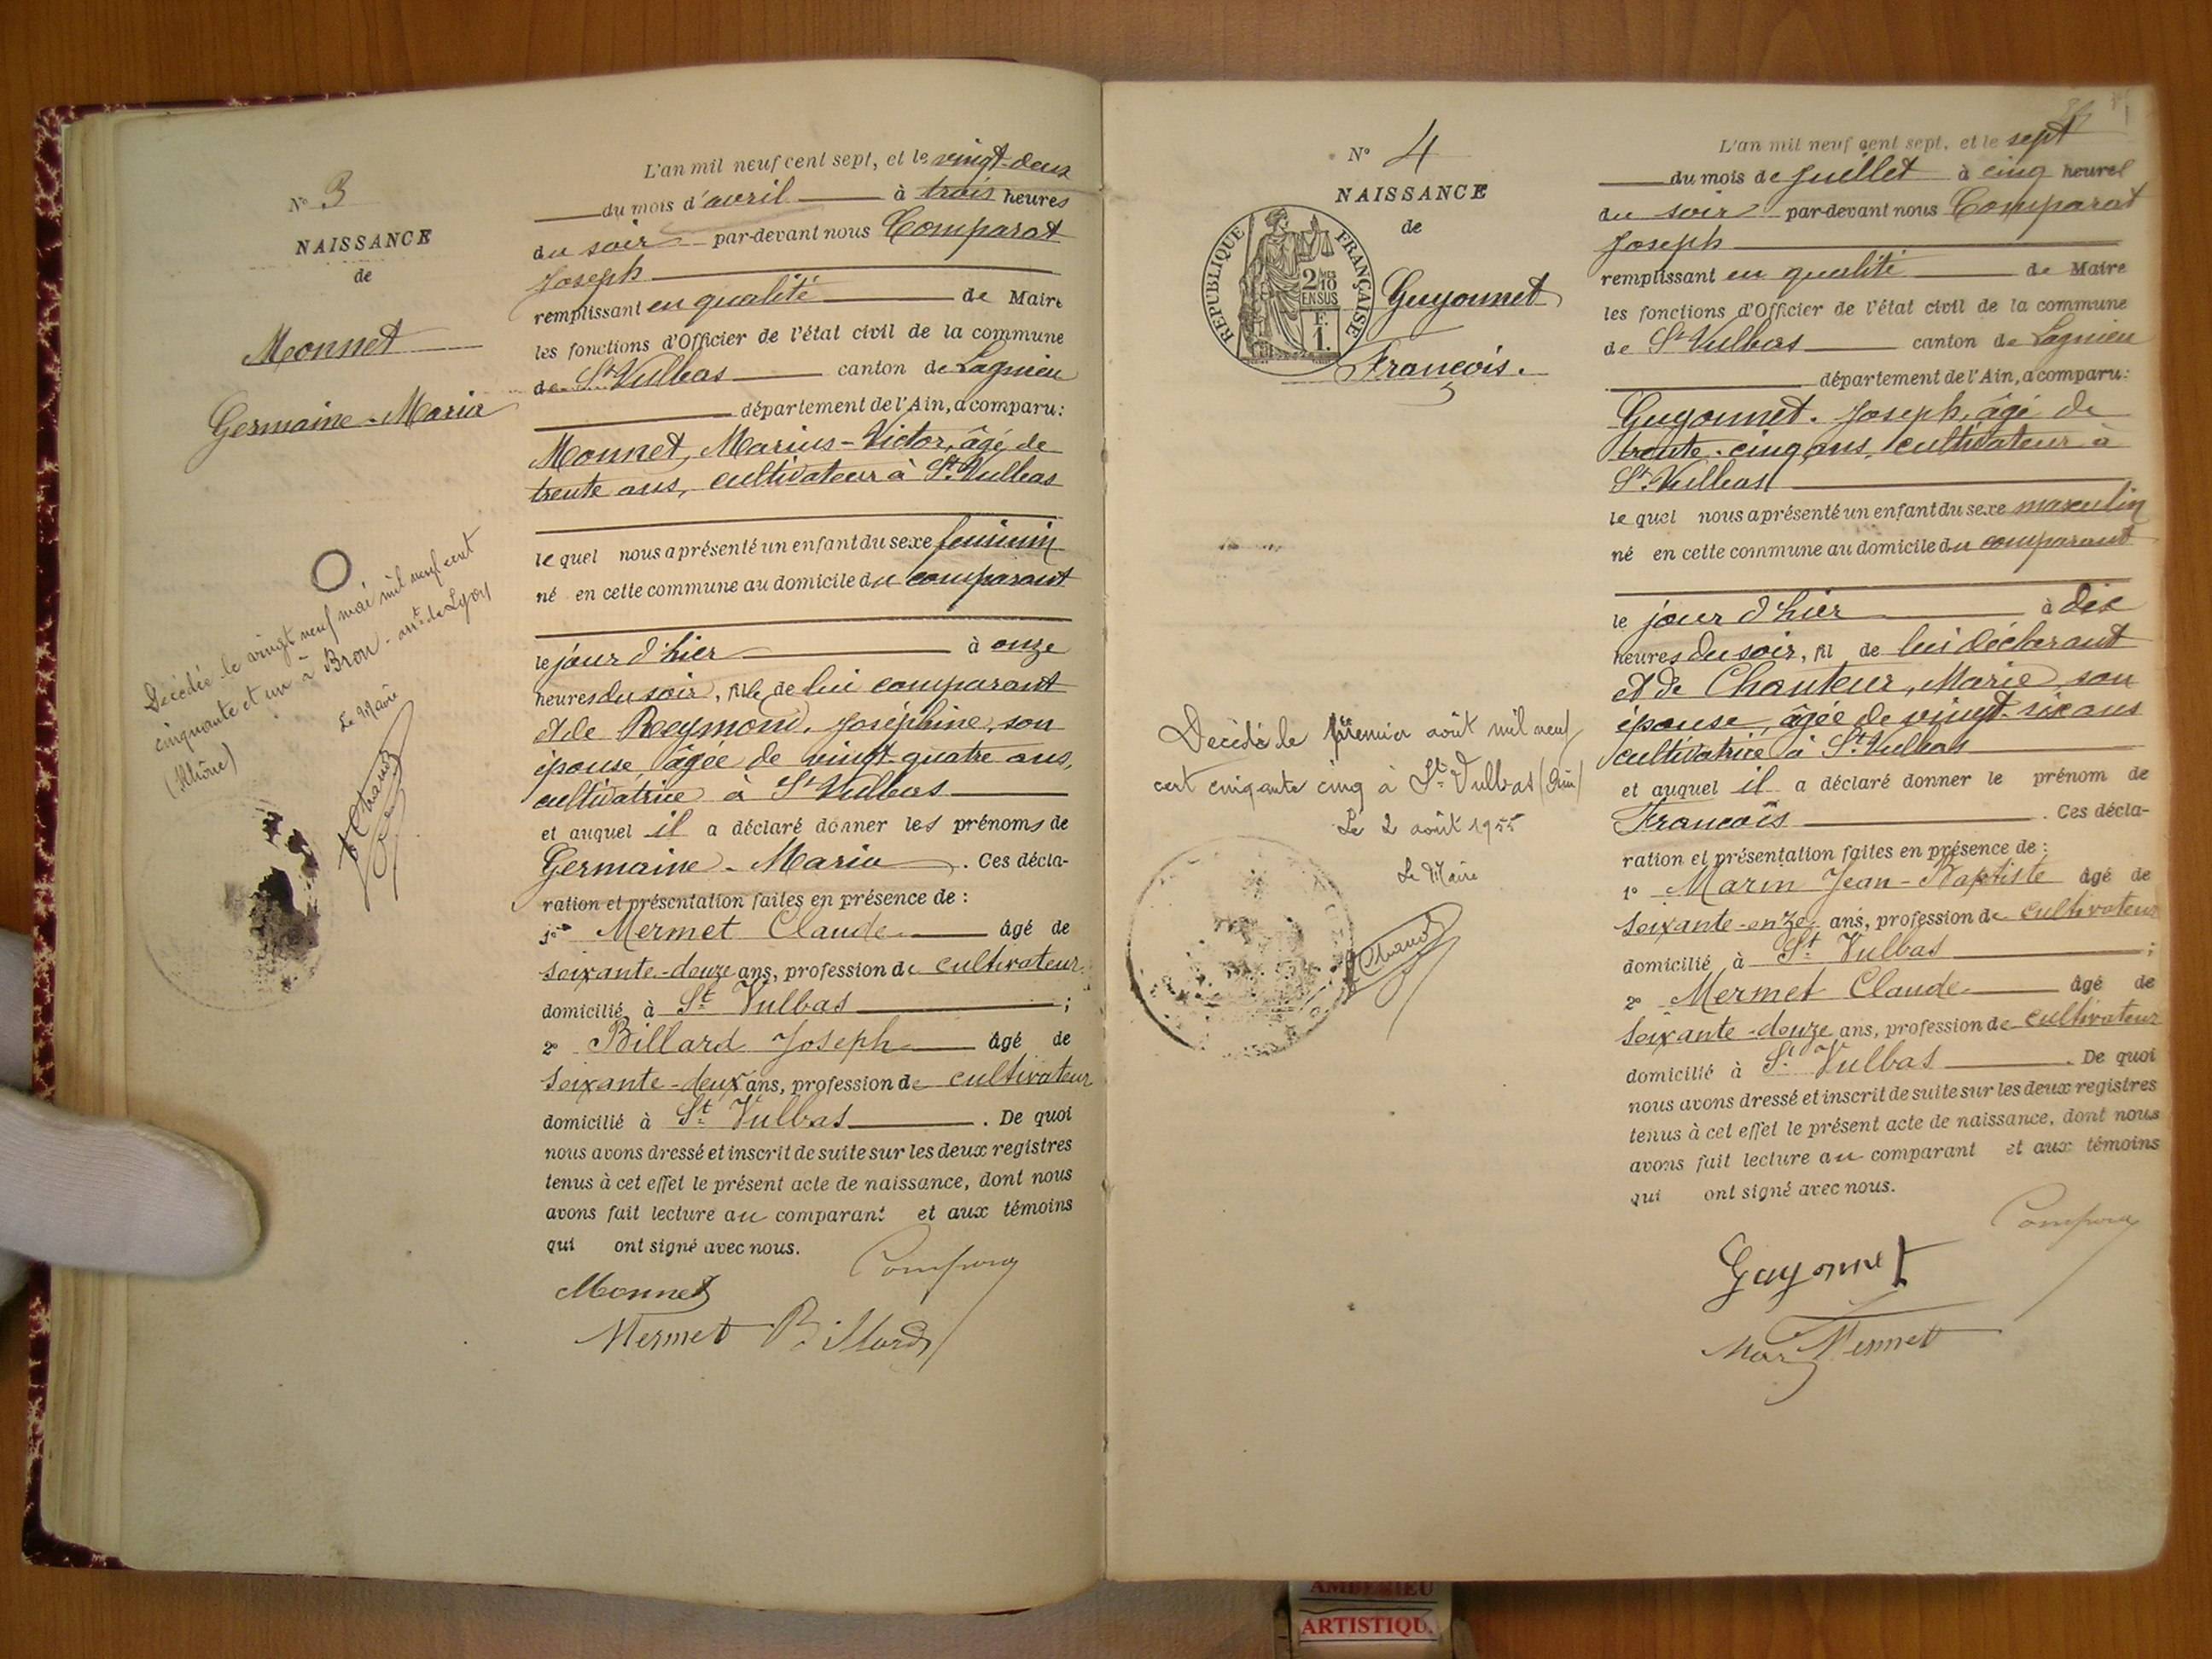 N° 3
NAISSANCE
de
Monnet
Germaine-Maria
Décédée le vingt neuf mai mil neuf cent
cinquante et un à Bron - arrt de Lyon
(Rhône)
Le Maire
L'an mil neuf cent sept, et le vingt-deux
du mois d'avril à trois heures
du soir par-devant nous Comparat
Joseph
remplissant en qualité de Maire
les fonctions d'Officier de l'état civil de la commune
de St Vulbas canton de Lagnieu
département de l'Ain, a comparu:
Monnet, Marius-Victor, âgé de
trente ans, cultivateur à St Vulbas
le quel nous a présenté un enfant du sexe féminin
né en cette commune au domicile du comparant
le jour d'hier à onze
heures du soir, fille de lui comparant
et de Reymond, Joséphine, son
épouse, âgée de vingt-quatre ans,
cultivatrice à St Vulbas
et auquel il a déclaré donner les prénoms de
Germaine-Maria. Ces décla-
ration et présentation faites en présence de :
1° Mermet Claude âgé de
soixante-douze ans, profession de cultivateur
domicilié à St Vulbas ;
2° Billard Joseph âgé de
soixante-deux ans, profession de cultivateur
domicilié à St Vulbas. De quoi
nous avons dressé et inscrit de suite sur les deux registres
tenus à cet effet le présent acte de naissance, dont nous
avons fait lecture au comparant et aux témoins
qui ont signé avec nous.
Monnet
Mermet Billard
N° 4
NAISSANCE
de
RÉPUBLIQUE FRANÇAISE
2/10
EN SUS
F.
1.
Guyonnet
François.
Décédé le premier août mil neuf
cent cinquante cinq à St Vulbas (Ain)
Le 2 août 1955
Le Maire
L'an mil neuf cent sept, et le sept
du mois de Juillet à cinq heures
du soir par-devant nous Comparat
Joseph
remplissant en qualité de Maire
les fonctions d'Officier de l'état civil de la commune
de St Vulbas canton de Lagnieu
département de l'Ain, a comparu:
Guyonnet. Joseph, âgé de
trente-cinq ans, cultivateur à
St Vulbas
le quel nous a présenté un enfant du sexe masculin
né en cette commune au domicile du comparant
le jour d'hier à dix
heures du soir, fil de lui déclarant
et de Chanteur, Marie, son
épouse, âgée de vingt-six ans
cultivatrice à St Vulbas
et auquel il a déclaré donner le prénom de
François. Ces décla-
ration et présentation faites en présence de :
1° Marin Jean-Baptiste âgé de
soixante-onze ans, profession de cultivateur
domicilié à St Vulbas ;
2° Mermet Claude âgé de
soixante-douze ans, profession de cultivateur
domicilié à St Vulbas. De quoi
nous avons dressé et inscrit de suite sur les deux registres
tenus à cet effet le présent acte de naissance, dont nous
avons fait lecture au comparant et aux témoins
qui ont signé avec nous.
Guyonnet
Mermet
AMBERIEU
ARTISTIQU